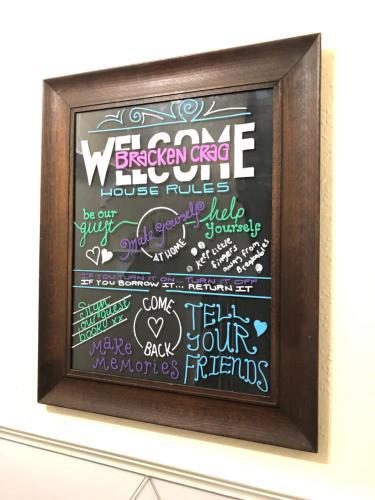 WELCOME
BRACKEN CRAG
HOUSE RULES
be our
guest
Make Yourself
AT HOME
help
yourself
Keep little
fingers
away from
Breakables
IF YOU TURN IT ON... TURN IT OFF
IF YOU BORROW IT... RETURN IT
Sign
our guest
book! xx
COME
BACK
Make
Memories
TELL
YOUR
FRIENDS